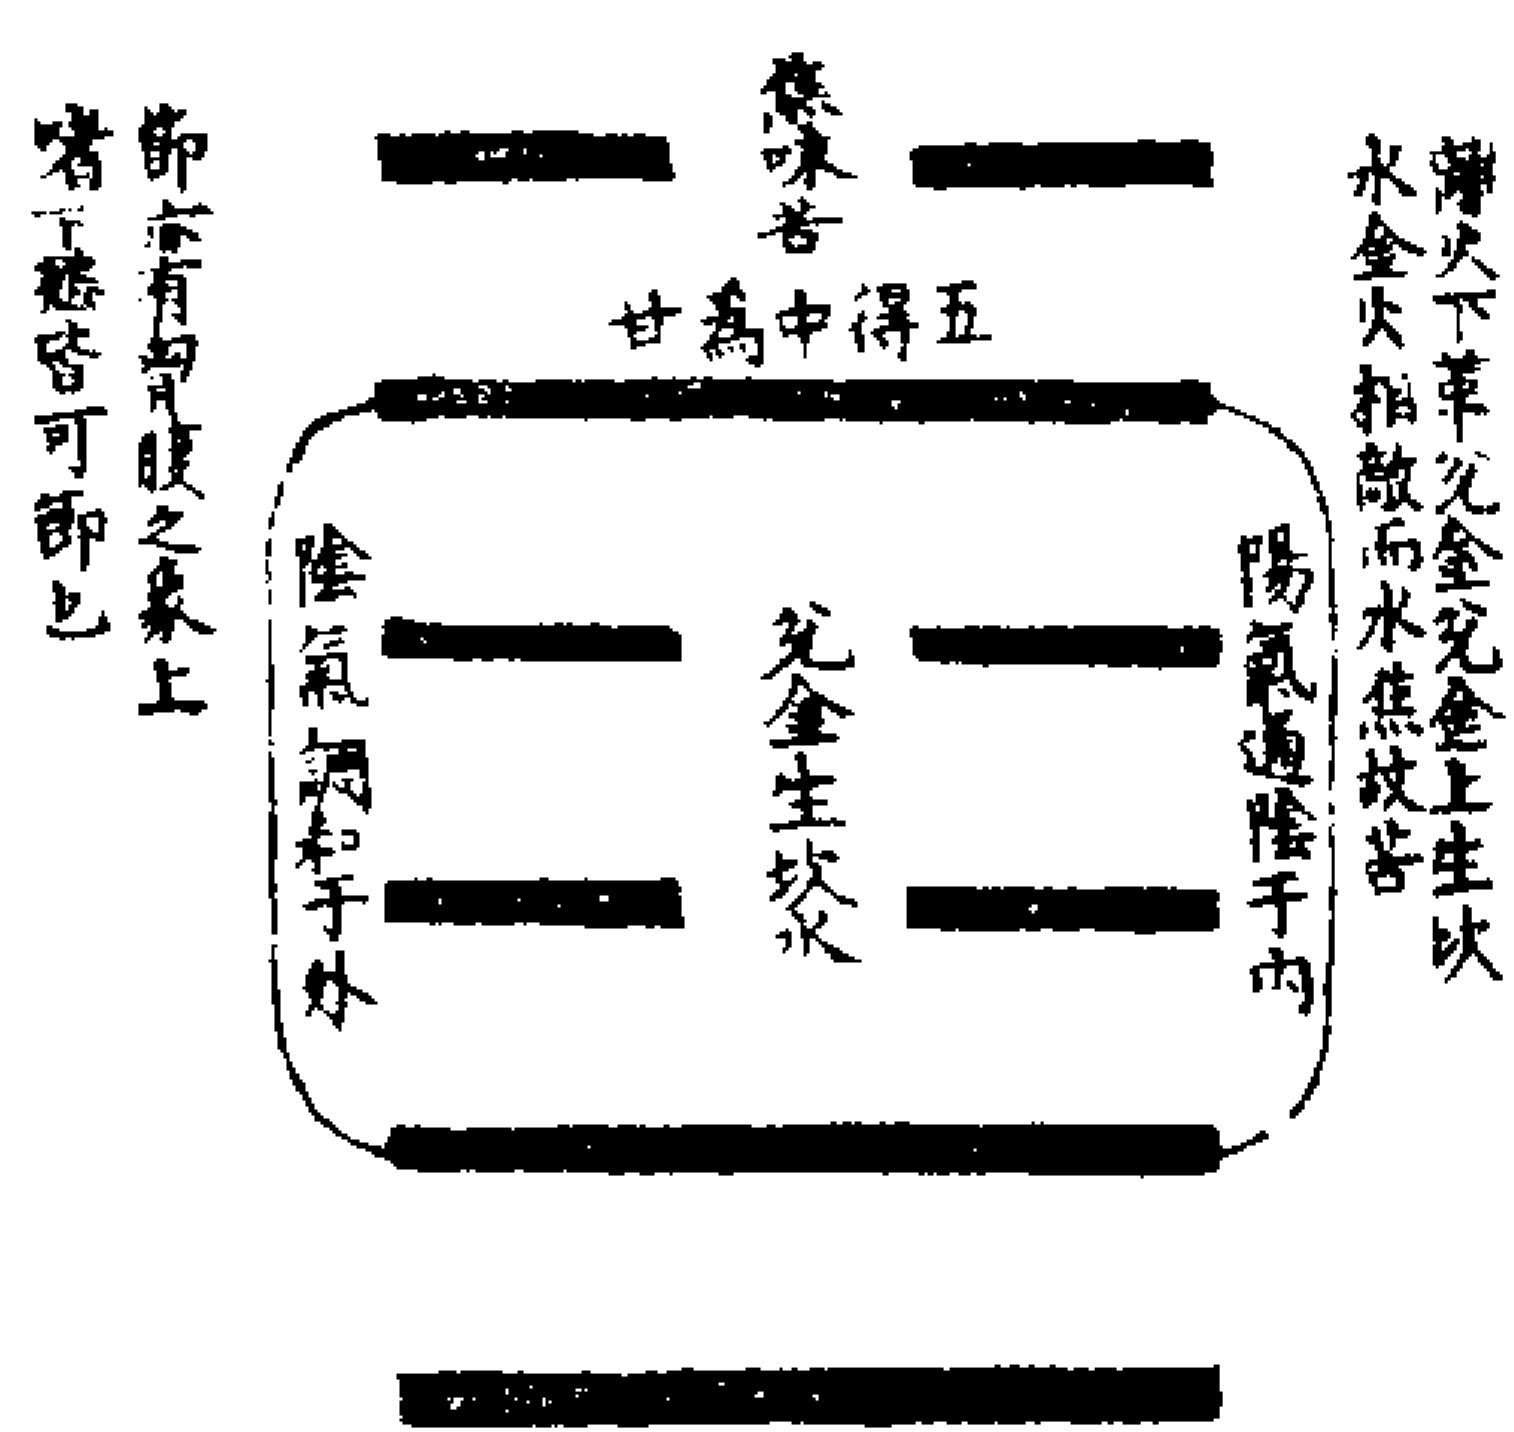 離火下革兌金兌金上生坎
水金火相敵而水焦故苦
焦味苦
五得中為甘
陽氣陰于內
兌金生坎水
陰氣調和于外
節亦有胃腹之象上
嗜下慾皆可節也